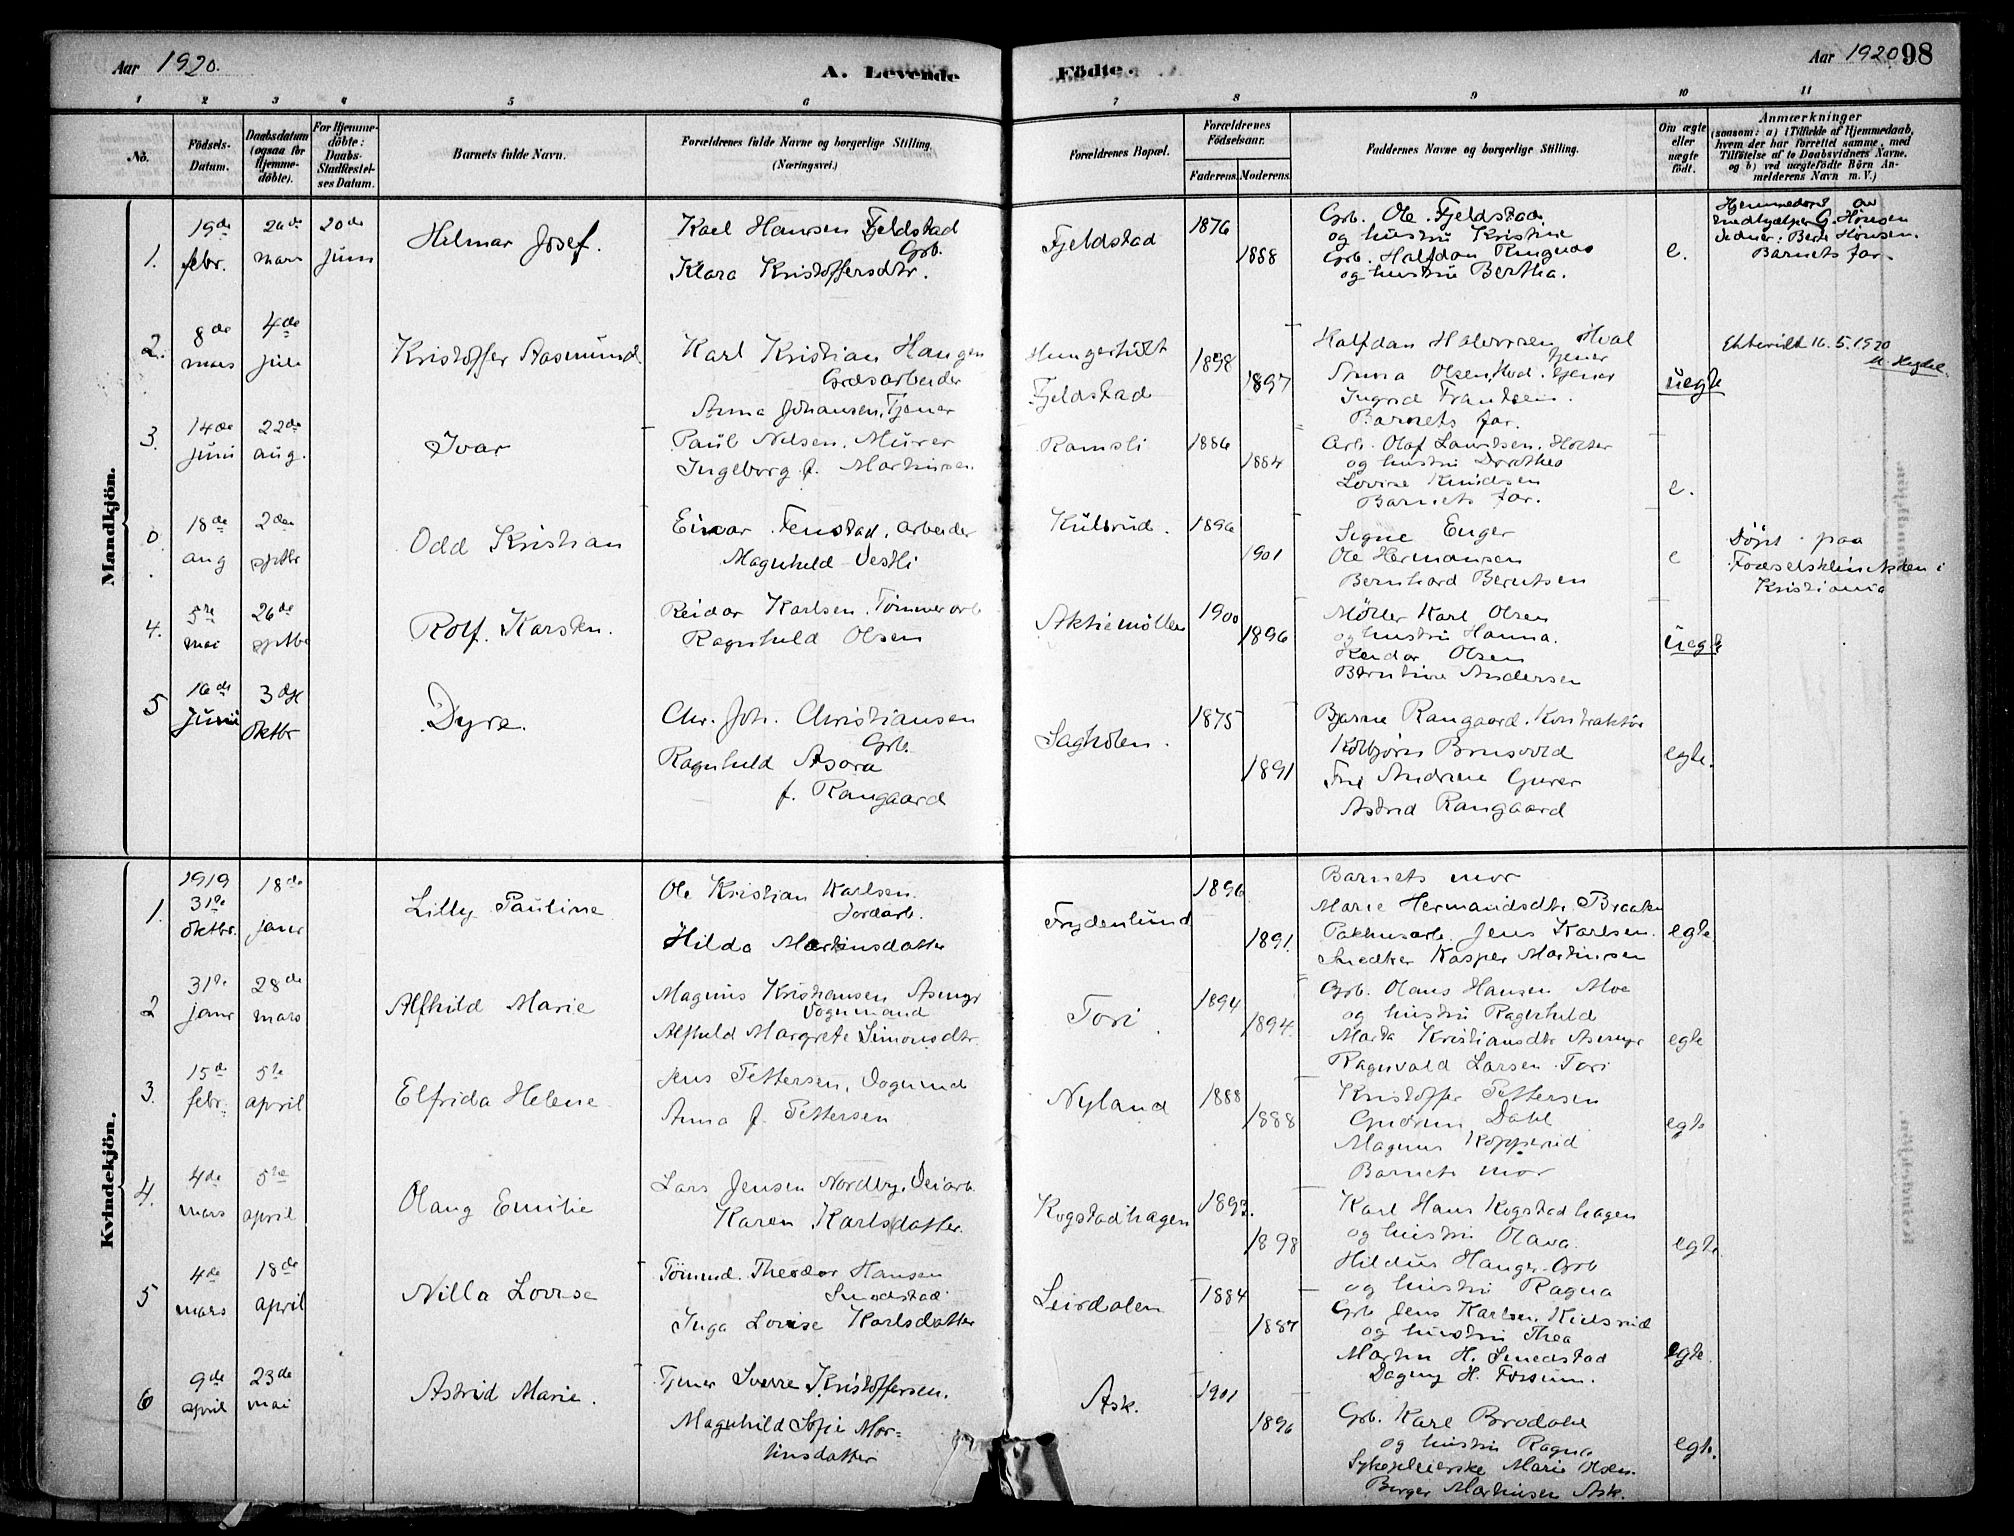 Aar 1920.
A. Levende
Födte.
Aar 1920
98
1 2 3 4 5 6 7 8 9 10 11
No.
Födsels-
Datum.
Daabsdatum
(ogsaa for
Hjemme-
döbte).
For Hjemme-
döbte:
Daabs-
Stadfæstel-
ses Datum.
Barnets fulde Navn.
Forældrenes fulde Navne og borgerlige Stilling.
(Næringsvei.)
Forældrenes Bopæl.
Forældrenes
Födselsaar.
Faderens. Moderens.
Faddernes Navne og borgerlige Stilling.
Om ægte
eller
uægte
födt.
Anmærkninger
(saasom: a) i Tilfælde af Hjemmedaab,
hvem der har forrettet samme, med
Tilföielse af to Daabsvidners Navne,
og b) ved uægtefödte Börn An-
melderens Navn m. V.)
Mandkjön.
1.
19de
febr.
20de
mars
20de
juni
Hilmar Josef.
Karl Hansen Fjeldstad
Grb.
Klara Kristoffersdtr.
Fjeldstad
1876
1888
Grb. Ole Fjeldstad
og hustru Kristine
Grb. Halfdan Ringnas
og hustru Bertha.
e.
Hjemmedøpt av
G. Hønsen
Berte Hønsen.
Barnets far.
2.
8de
mars
4de
juli
Kristoffer Aasmund
Karl Kristian Haugen
Grdsarbeider
Anna Johansen, Tjener
Fjeldstad
1898
1897
Halfdan Halvorsen Hval
tjener
Anna Olsen, Hval. tjener
Ingrid Frantsen.
Barnets far.
uegte
16.5.1920
3.
14de
juni
22de
aug.
Ivar
Paul Nilsen, Murer
Ingeborg f. Martinsen
Ramsli
1886
1884
Arb. Olaf Lauritsen, Holter
og hustru Dorthea
Lovise Knudsen
Barnets far.
e.
0.
18de
aug
2den
sptbr
Odd Kristian
Einar Fenstad, arbeider
Magnhild Vestli
Kulsrud.
1896
1901
Signe Enger
Ole Hermansen
Bernhard Berntsen
e
Døpt paa
Fødselsklinikken i
Kristiania
4.
5te
mai
26de
sptbr
Rolf Karsten.
Reidar Karlsen, Tømmerarb
Ragnhild Olsen
Aktiemøllen
1900
1896
Møller Karl Olsen
og hustru Hanna.
Reidar Olsen
Berntine Andersen
uegte
5
16de
juni
3dje
oktbr
Dyre.
Chr. Joh. Christiansen
Grb.
Ragnhild Asora
f. Rangaard
Sagholen.
1875
1891
Bjarne Rangaard. Kontraktør
Kolbjørn Brusvold
Andrine Gurer
Astrid Rangaard
egte.
Kvindekjön.
1.
1919
31te
oktbr.
18de
janr
Lilly Pauline
Ole Kristian Karlsen.
Jordarb.
Hilda Martinsdatter
Frydenlund
1896
1891.
Barnets mor
Marie Hermandsdtr. Braaten
Pakhusarb. Jens Karlsen.
Snedker Kasper Martinsen
egte
2
31te
janr
28de
mars
Alfhild Marie
Magnus Kristiansen
Vognmand
Alfhild Margrete Simonsdtr.
Tori.
1894
1894.
Grb. Olaus Hansen Moe
og hustru Ragnhild
Marta Kristiansdtr
Ragnvald Larsen Tori
egte
3.
15de
febr.
5te
april
Elfrida Helene
Jens Pettersen,
Anna f. Pettersen
Nyland
1888
1888
Kristoffer Pettersen
Gudrun Dahl
Magnus Kopperud
Barnets mor
egte
4.
4de
mars
5te
april
Olaug Emilie
Lars Jensen Nordby, Veiarb.
Karen Karlsdatter.
Kogstadhagen
1893.
1898
Karl Hans Kogstadhagen
og hustru Olava.
Hildus Hauger Grb
og hustru Ragna
egte
5
4de
mars
18de
april
Nilla Lovise
Tømmd. Theodor Hansen
Smedstad
Inga Lovise Karlsdatter
Leirdalen
1884
1887
Grb Jens Karlsen, Kulsrud
og hustru Thea
Martin H. Smedstad
Dagny H. Forsum.
egte.
6
9de
april
23de
mai
Astrid Marie.
Tjener Sverre Kristoffersen.
Magnhild Sofie Mar-
tinsdatter
Ask.
1901
1896
Grb. Karl Brodahl
og hustru Ragna
Sykepleierske Marie Holm.
Birger Martinsen Ask.
egte.